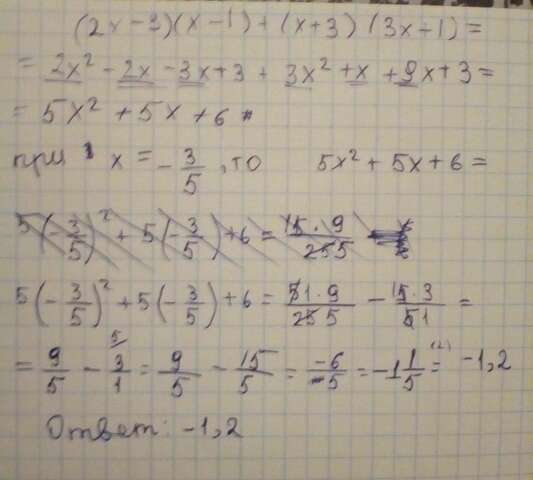 (2x-3)(x-1)+(x+3)(3x+1)=
=2x²-2x-3x+3+3x²+x+9x+3=
=5x²+5x+6
при x=-3/5, то 5x²+5x+6=
5(-3/5)²+5(-3/5)+6=15·9/25 5
5(-3/5)²+5(-3/5)+6=51·9/25 5 - 15·3/51=
=9/5-3/1=9/5-15/5=-6/5=-1 1/5=-1,2
Ответ: -1,2